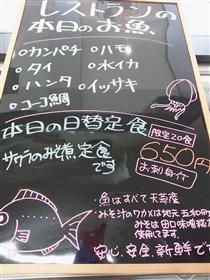 レストランの
本日のお魚
○カンパチ ○ハモ
○タイ ○水イカ
○ハンタ ○イッサキ
○コーコ鯛
本日の日替定食 限定20食
サワラのみそ煮定食です
650円
お刺身付
・魚はすべて天草産
・みそ汁のワカメは地元五和町
みそは田口味噌
使用してます。
安心、安全、新鮮です